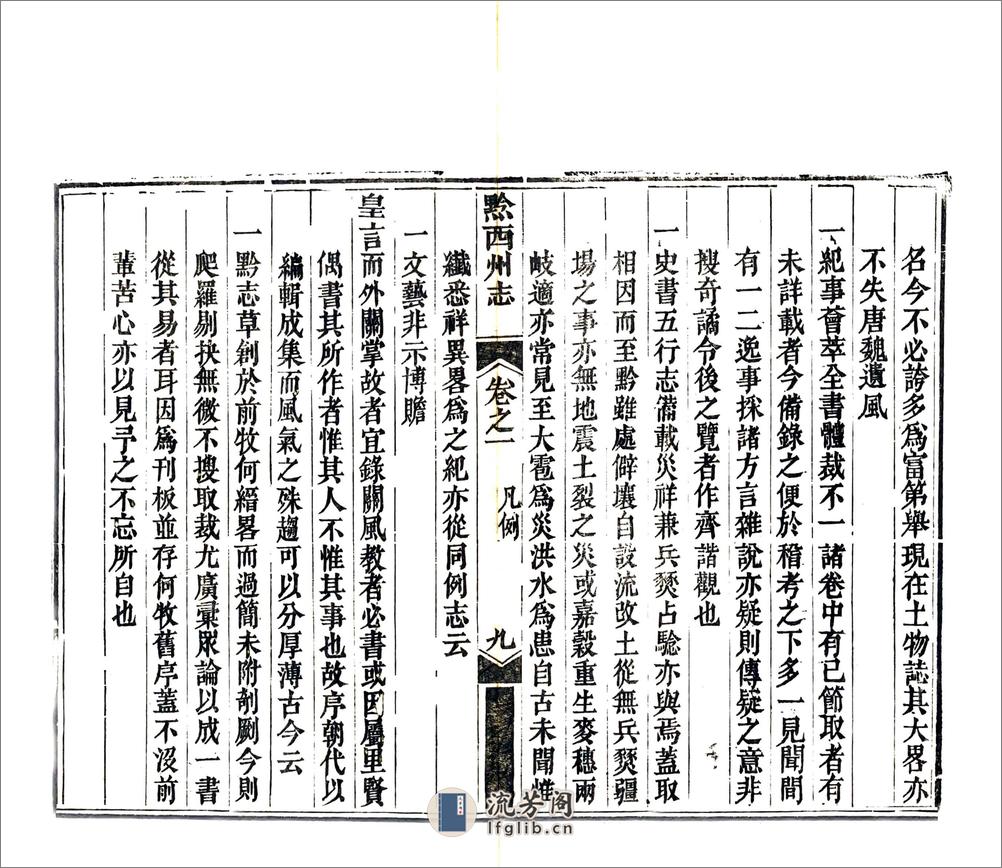 名今不必誇多爲富第舉現在土物誌其大畧亦
不失唐魏遺風
一紀事薈萃全書體裁不一諸卷中有已節取者有
未詳載者今備錄之便於稽考之下多一見聞間
有一二逸事採諸方言雜說亦疑則傳疑之意非
搜奇譎令後之覽者作齊諧觀也
一史書五行志備載災祥兼兵燹占驗亦與焉蓋取
相因而至黔雖處僻壤自設流改土從無兵燹疆
場之事亦無地震土裂之災或嘉穀重生麥穗兩
岐適亦常見至大雹爲災洪水爲患自古未聞惟
黔西州志
卷之一
凡例
九
纖悉祥異畧爲之紀亦從同例志云
一文藝非示博贍
皇言而外關掌故者宜錄關風教者必書或因屬里賢
偶書其所作者惟其人不惟其事也故序朝代以
編輯成集而風氣之殊趨可以分厚薄古今云
一黔志草創於前牧何縉畧而過簡未附剞劂今則
爬羅剔抉無微不搜取裁尤廣彙眾論以成一書
從其易者耳因爲刊板並存何牧舊序蓋不沒前
輩苦心亦以見予之不忘所自也
流芳阁
lfglib.cn